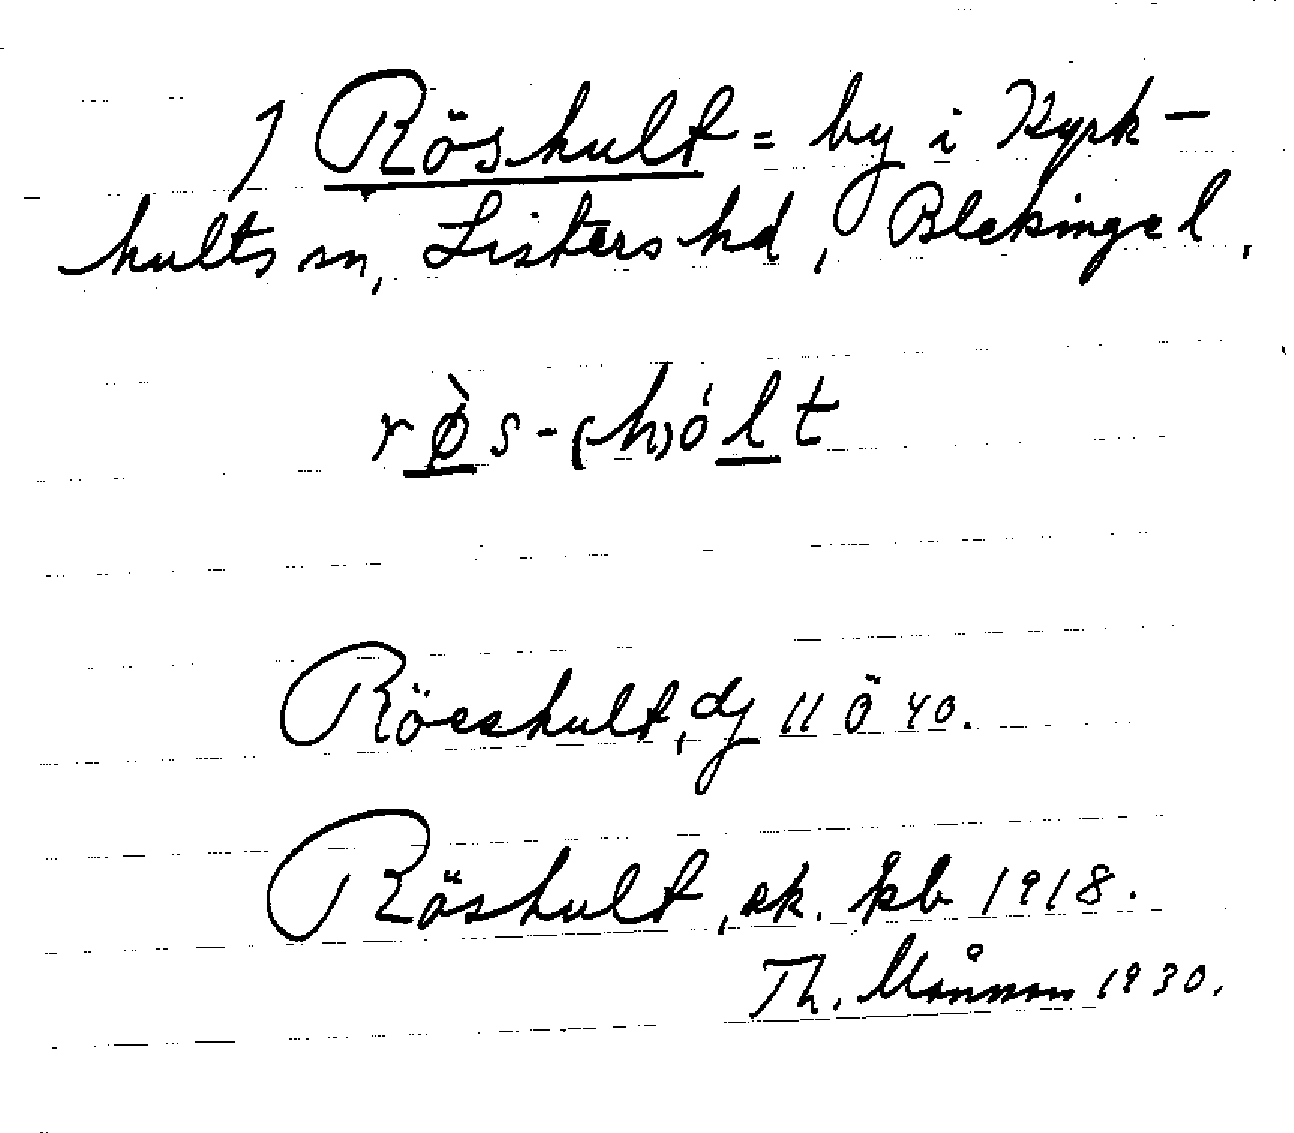 ) Röshult = by i Kyrk-
hults sn, Listers hd, Blekinge l.
rø̀s-(h)ólt
Röeshult, dj 11 ö 40.
Röshult, ek. kb 1918.
Th. Månsson 1930.